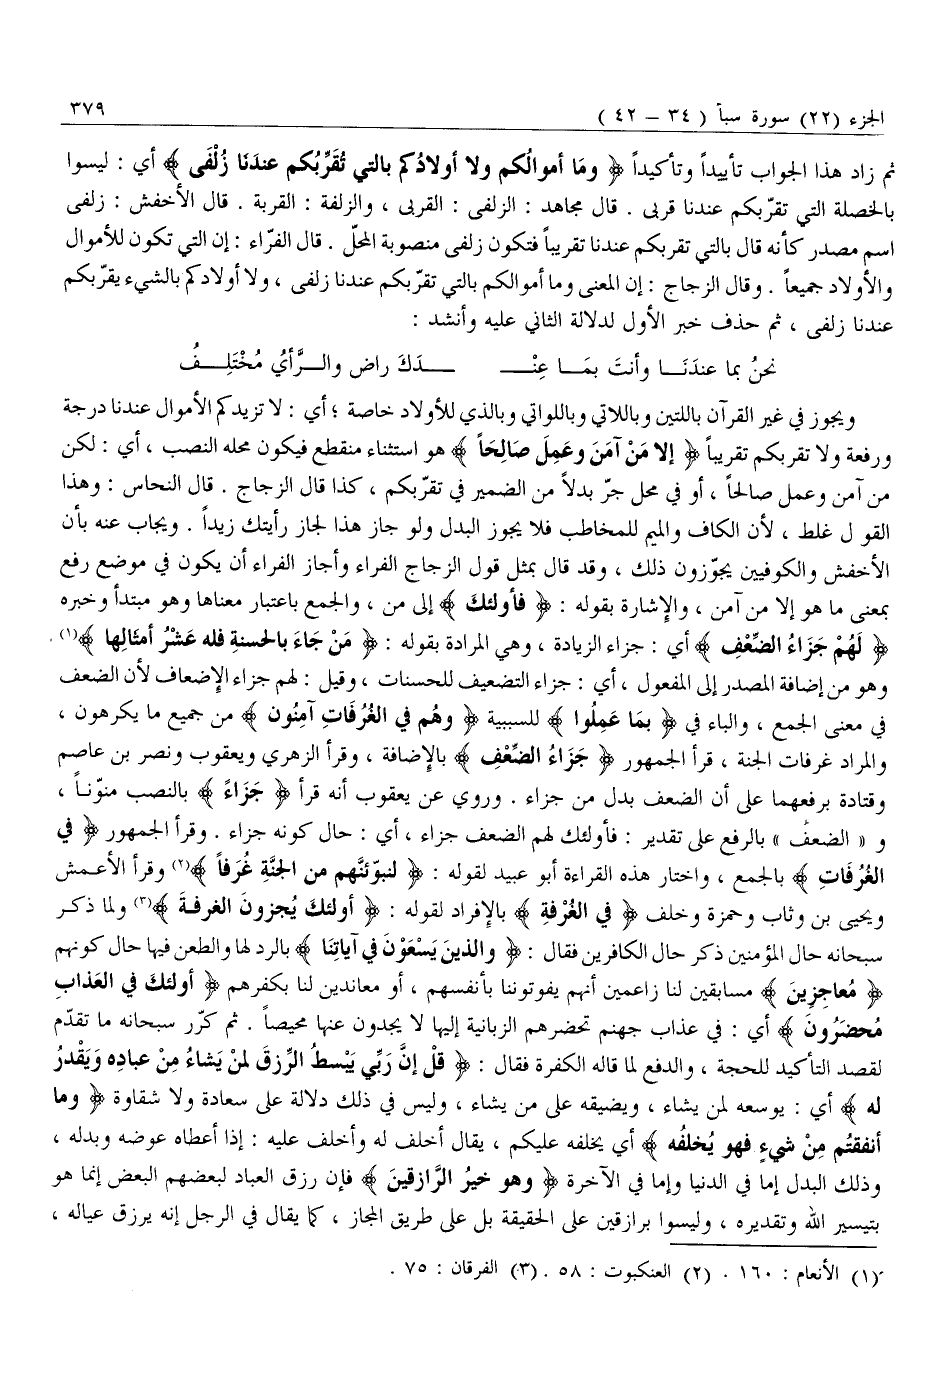 الجزء (٢٢) سورة سبأ ( ٣٤ – ٤٢ ) ٣٧٩
ثم زاد هذا الجواب تأييداً وتأكيداً ﴿ وما أموالُكم ولا أولادُكم بالتي تُقَرِّبُكم عندَنا زُلْفَى ﴾ أي : ليسوا
بالخصلة التي تقرّبكم عندنا قربى . قال مجاهد : الزلفى : القربى ، والزلفة : القربة . قال الأخفش : زلفى
اسم مصدر كأنه قال بالتي تقربكم عندنا تقريباً فتكون زلفى منصوبة المحلّ . قال الفرّاء : إن التي تكون للأموال
والأولاد جميعاً . وقال الزجاج : إن المعنى وما أموالكم بالتي تقرّبكم عندنا زلفى ، ولا أولادكم بالشيء يقرّبكم
عندنا زلفى ، ثم حذف خبر الأول لدلالة الثاني عليه وأنشد :
نحنُ بما عندَنَــا وأنتَ بمَــا عِنْــ ـــدَكَ راض والــرَّأيُ مُخْتَلِــفُ
ويجوز في غير القرآن باللتين وباللاتي وباللواتي وبالذي للأولاد خاصة ؛ أي : لا تزيدكم الأموال عندنا درجة
ورفعة ولا تقربكم تقريباً ﴿ إلا مَنْ آمَنَ وعَمِلَ صَالِحَاً ﴾ هو استثناء منقطع فيكون محله النصب ، أي : لكن
من آمن وعمل صالحاً ، أو في محل جرّ بدلاً من الضمير في تقرّبكم ، كذا قال الزجاج . قال النحاس : وهذا
القو ل غلط ، لأن الكاف والميم للمخاطب فلا يجوز البدل ولو جاز هذا لجاز رأيتك زيداً . ويجاب عنه بأن
الأخفش والكوفيين يجوّزون ذلك ، وقد قال بمثل قول الزجاج الفراء وأجاز الفراء أن يكون في موضع رفع
بمعنى ما هو إلا من آمن ، والإشارة بقوله : ﴿ فأولئكَ ﴾ إلى من ، والجمع باعتبار معناها وهو مبتدأ وخبره
﴿ لَهُمْ جَزَاءُ الضِّعْفِ ﴾ أي : جزاء الزيادة ، وهي المرادة بقوله : ﴿ مَنْ جَاءَ بالحسنةِ فله عَشْرُ أمثَالِها ﴾(١) .
وهو من إضافة المصدر إلى المفعول ، أي : جزاء التضعيف للحسنات ، وقيل : لهم جزاء الإضعاف لأن الضعف
في معنى الجمع ، والباء في ﴿ بمَا عَمِلُوا ﴾ للسببية ﴿ وهُم في الغُرُفَاتِ آمِنُون ﴾ من جميع ما يكرهون ،
والمراد غرفات الجنة ، قرأ الجمهور ﴿ جَزَاءُ الضِّعْفِ ﴾ بالإضافة ، وقرأ الزهري ويعقوب ونصر بن عاصم
وقتادة برفعهما على أن الضعف بدل من جزاء . وروي عن يعقوب أنه قرأ ﴿ جَزَاءً ﴾ بالنصب منوّناً ،
و « الضعفُ » بالرفع على تقدير : فأولئك لهم الضعف جزاء ، أي : حال كونه جزاء . وقرأ الجمهور ﴿ في
الغُرُفَاتِ ﴾ بالجمع ، واختار هذه القراءة أبو عبيد لقوله : ﴿ لنبوّئنَّهم من الجنَّةِ غُرَفاً ﴾(٢) وقرأ الأعمش
ويحيى بن وثاب وحمزة وخلف ﴿ في الغُرْفةِ ﴾ بالإفراد لقوله : ﴿ أولئكَ يُجزونَ الغرفةَ ﴾(٣) ولما ذكر
سبحانه حال المؤمنين ذكر حال الكافرين فقال : ﴿ والذينَ يَسْعَوْنَ في آياتِنَا ﴾ بالرد لها والطعن فيها حال كونهم
﴿ مُعاجزِينَ ﴾ مسابقين لنا زاعمين أنهم يفوتوننا بأنفسهم ، أو معاندين لنا بكفرهم ﴿ أولئكَ في العَذابِ
مُحضَرُونَ ﴾ أي : في عذاب جهنم تحضرهم الزبانية إليها لا يجدون عنها محيصاً . ثم كرّر سبحانه ما تقدّم
لقصد التأكيد للحجة ، والدفع لما قاله الكفرة فقال : ﴿ قلْ إنَّ رَبِّي يَبْسطُ الرِّزقَ لمنْ يَشاءُ مِنْ عبادِه وَيَقْدرُ
له ﴾ أي : يوسعه لمن يشاء ، ويضيقه على من يشاء ، وليس في ذلك دلالة على سعادة ولا شقاوة ﴿ وما
أنفقتُم مِنْ شيءٍ فهو يُخلفُه ﴾ أي يخلفه عليكم ، يقال أخلف له وأخلف عليه : إذا أعطاه عوضه وبدله ،
وذلك البدل إما في الدنيا وإما في الآخرة ﴿ وهو خيرُ الرَّازقينَ ﴾ فإن رزق العباد لبعضهم البعض إنما هو
بتيسير الله وتقديره ، وليسوا برازقين على الحقيقة بل على طريق المجاز ، كما يقال في الرجل إنه يرزق عياله ،
(١) الأنعام : ١٦٠ . (٢) العنكبوت : ٥٨ . (٣) الفرقان : ٧٥ .